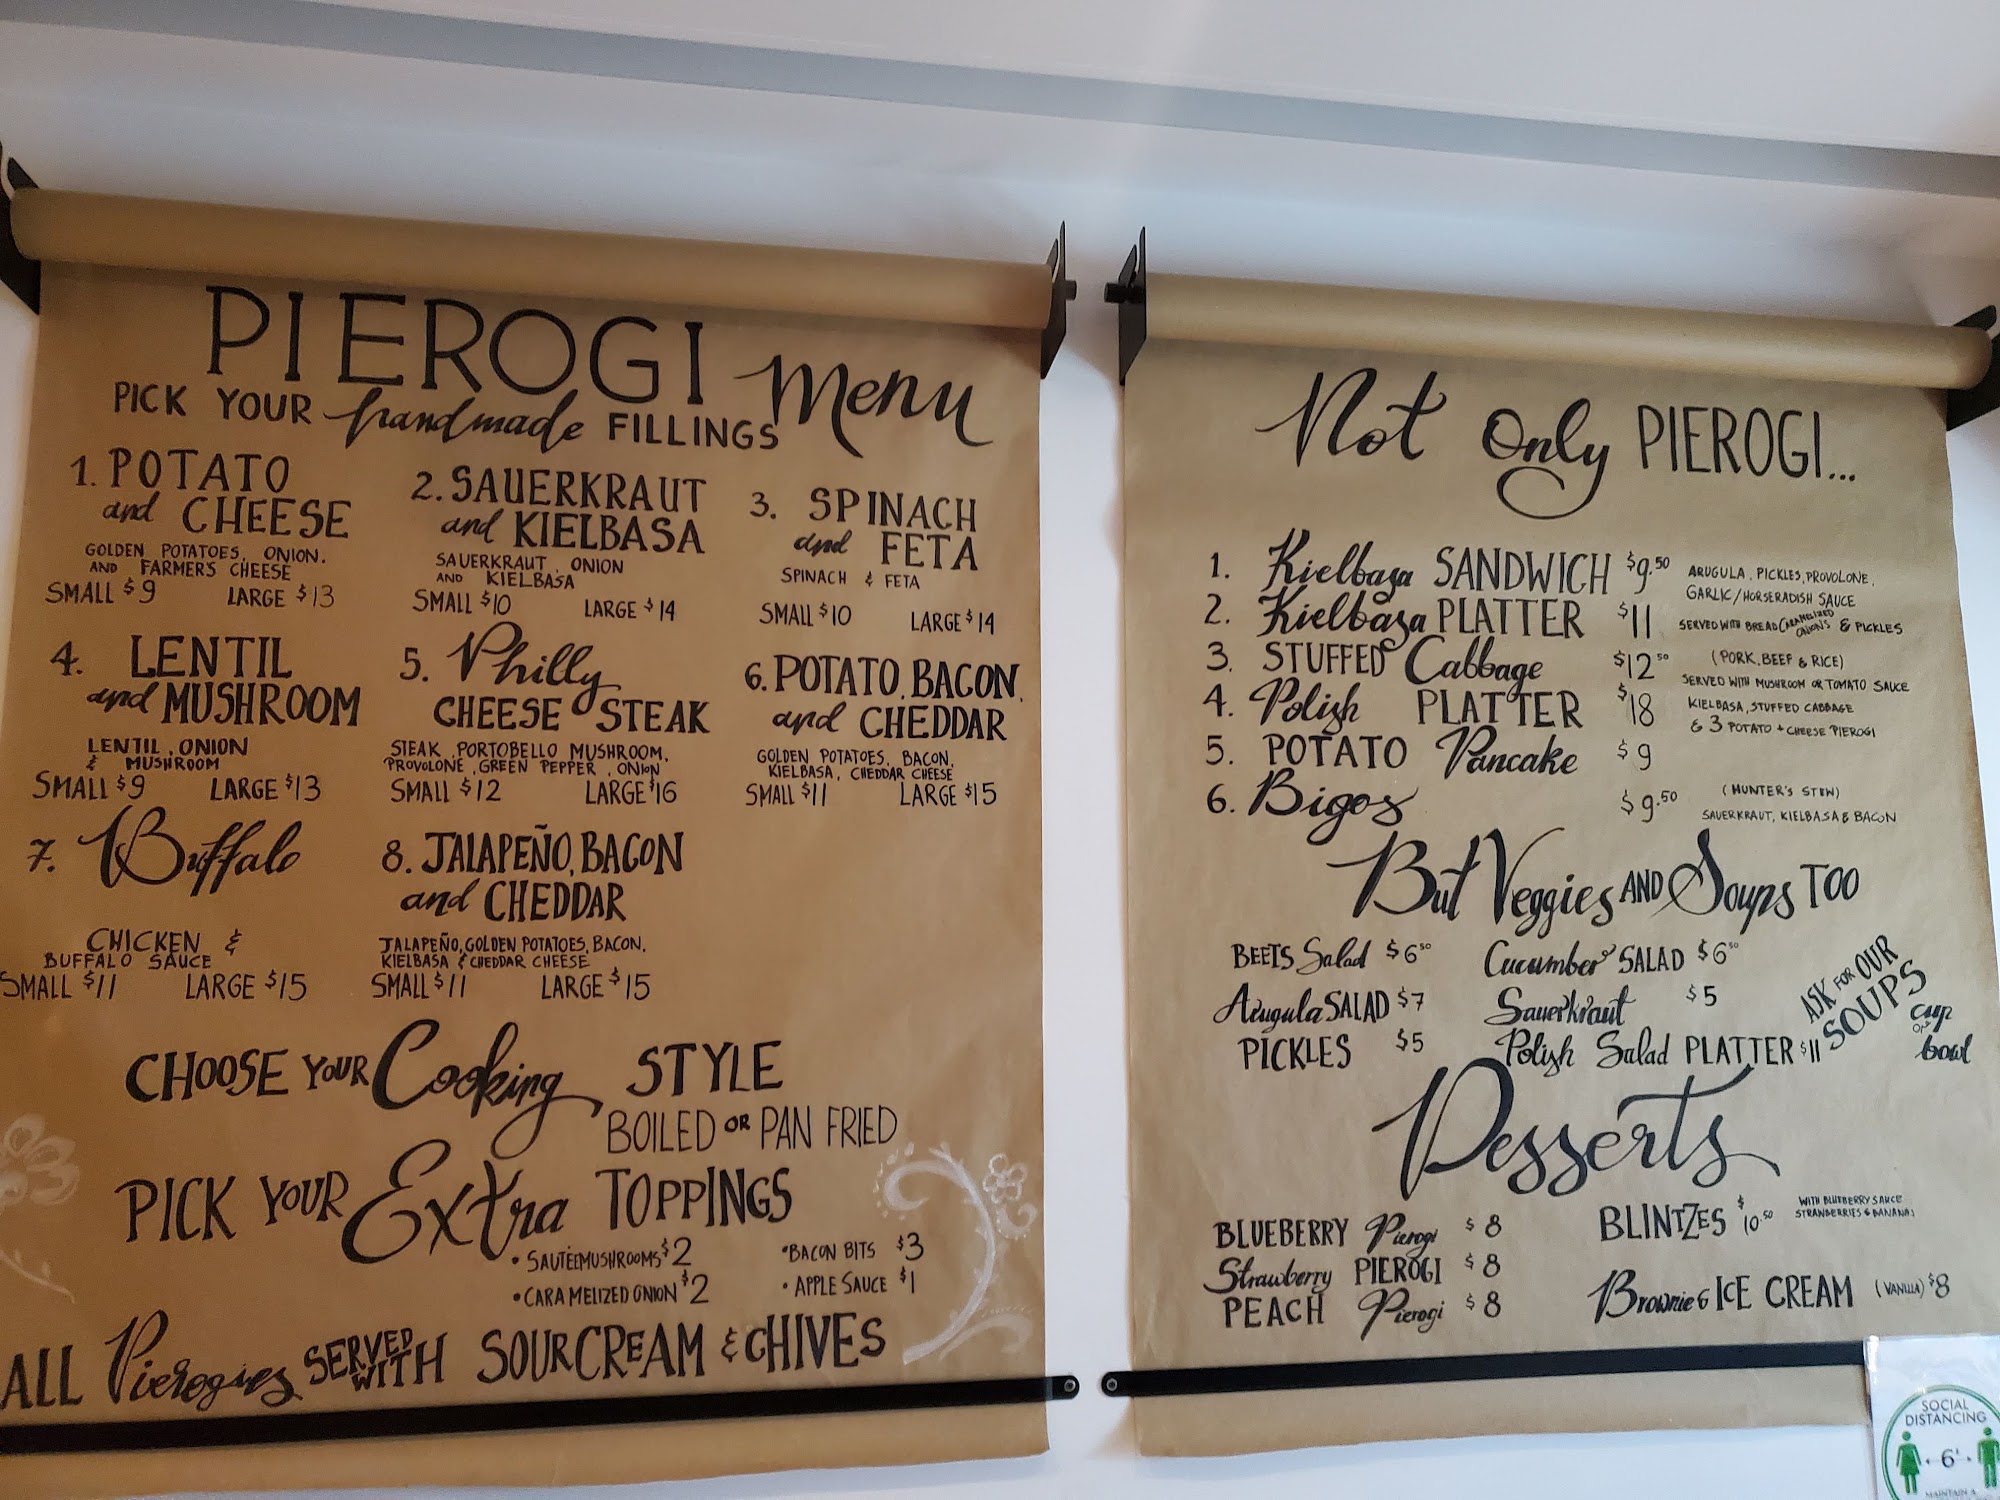 PIEROGI Menu
PICK YOUR handmade FILLINGS
1. POTATO
and CHEESE
GOLDEN POTATOES, ONION,
AND FARMERS CHEESE
SMALL $9 LARGE $13
2. SAUERKRAUT
and KIELBASA
SAUERKRAUT, ONION
AND KIELBASA
SMALL $10 LARGE $14
3. SPINACH
and FETA
SPINACH & FETA
SMALL $10 LARGE $14
4. LENTIL
and MUSHROOM
LENTIL, ONION
& MUSHROOM
SMALL $9 LARGE $13
5. Philly
CHEESE STEAK
STEAK, PORTOBELLO MUSHROOM,
PROVOLONE, GREEN PEPPER, ONION
SMALL $12 LARGE $16
6. POTATO, BACON,
and CHEDDAR
GOLDEN POTATOES, BACON,
KIELBASA, CHEDDAR CHEESE
SMALL $11 LARGE $15
7. Buffalo
CHICKEN &
BUFFALO SAUCE
SMALL $11 LARGE $15
8. JALAPEÑO, BACON
and CHEDDAR
JALAPEÑO, GOLDEN POTATOES, BACON,
KIELBASA & CHEDDAR CHEESE
SMALL $11 LARGE $15
CHOOSE YOUR Cooking STYLE
BOILED OR PAN FRIED
PICK YOUR Extra TOPPINGS
• SAUTÉEMUSHROOMS $2 • BACON BITS $3
• CARAMELIZED ONION $2 • APPLE SAUCE $1
ALL Pierogies SERVED WITH SOUR CREAM & CHIVES
Not Only PIEROGI...
1. Kielbasa SANDWICH $9.50 ARUGULA, PICKLES, PROVOLONE,
GARLIC/HORSERADISH SAUCE
2. Kielbasa PLATTER $11 SERVED WITH BREAD CARAMELIZED ONIONS & PICKLES
3. STUFFED Cabbage $12.50 (PORK, BEEF & RICE)
SERVED WITH MUSHROOM OR TOMATO SAUCE
4. Polish PLATTER $18 KIELBASA, STUFFED CABBAGE
& 3 POTATO + CHEESE PIEROGI
5. POTATO Pancake $9
6. Bigos $9.50 (HUNTER'S STEW)
SAUERKRAUT, KIELBASA & BACON
But Veggies AND Soups TOO
BEETS Salad $6.50 Cucumber SALAD $6.50
Arugula SALAD $7 Sauerkraut $5
PICKLES $5 Polish Salad PLATTER $11
ASK FOR OUR
SOUPS
cup
or
bowl
Desserts
BLUEBERRY Pierogi $8
Strawberry PIEROGI $8
PEACH Pierogi $8
BLINTZES $10.50 WITH BLUEBERRY SAUCE
STRAWBERRIES & BANANAS
Brownie & ICE CREAM (VANILLA) $8
SOCIAL
DISTANCING
6'
MAINTAIN A